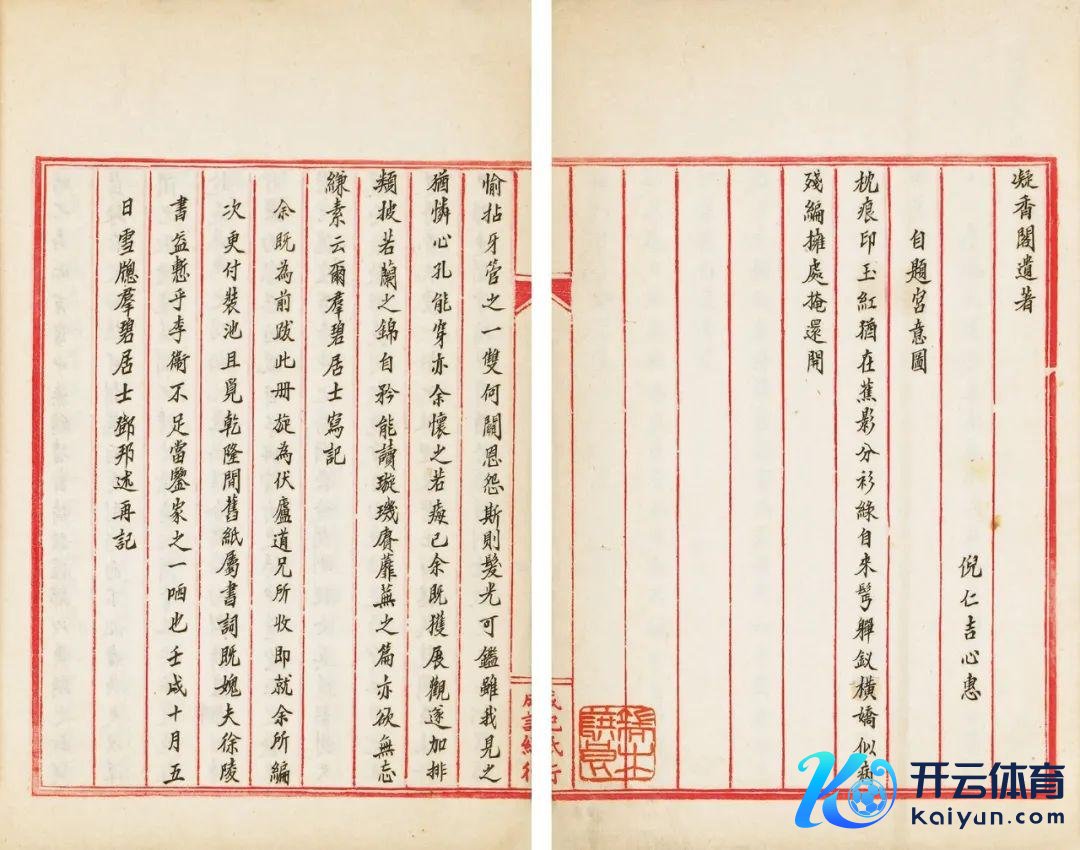 凝香閣遺著
倪仁吉心惠
自題宮意圖
枕痕印玉紅猶在蕉影分衫綠自來鬢嚲釵橫嬌似病
殘編擁處掩還開
愉拈牙管之一雙何關恩怨斯則髮光可鑑雖我見之
猶憐心孔能穿亦余懷之若癡已余既獲展觀遂加排
類披若蘭之錦自矜能讀璇璣賡蘼蕪之篇亦欲無忘
縑素云爾羣碧居士寫記
余既為前跋此册旋為伏廬道兄所收即就余所編
次更付裝池且覓乾隆閒舊紙屬書詞既媿夫徐陵
書益慙乎李衞不足當鑒家之一哂也壬戌十月五
日雪牕羣碧居士鄧邦述再記
开云体育
kaiyun.com